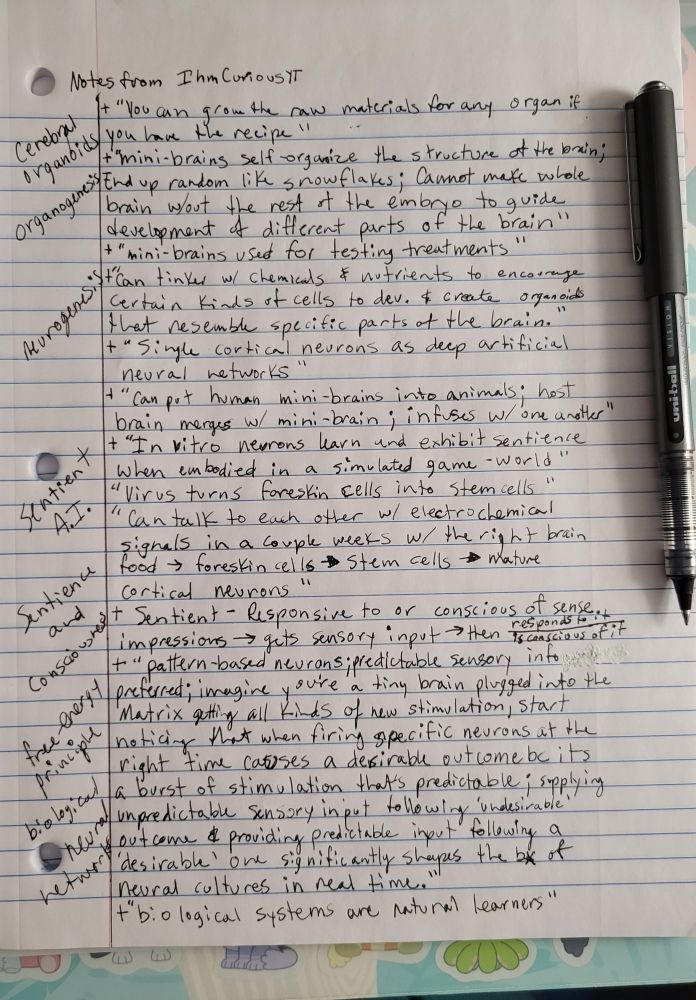 Notes from IhmCuriousYT
+ "You can grow the raw materials for any organ if
you have the recipe"
+ "mini-brains self-organize the structure of the brain;
End up random like snowflakes; Cannot make whole
brain w/out the rest of the embryo to guide
development of different parts of the brain"
+ "mini-brains used for testing treatments"
+ "Can tinker w/ chemicals & nutrients to encourage
certain kinds of cells to dev. & create organoids
that resemble specific parts of the brain."
+ "Single cortical neurons as deep artificial
neural networks"
+ "Can put human mini-brains into animals; host
brain merges w/ mini-brain; infuses w/ one another"
+ "In vitro neurons learn and exhibit sentience
when embodied in a simulated game-world"
"Virus turns foreskin cells into stem cells"
"Can talk to each other w/ electrochemical
signals in a couple weeks w/ the right brain
food → foreskin cells → stem cells → mature
cortical neurons"
+ Sentient - Responsive to or conscious of sense
impressions → gets sensory input → then responds to it
is conscious of it
+ "pattern-based neurons; predictable sensory info
preferred; imagine you're a tiny brain plugged into the
Matrix getting all kinds of new stimulation, start
noticing that when firing specific neurons at the
right time causes a desirable outcome bc its
a burst of stimulation that's predictable; supplying
unpredictable sensory input following 'undesirable'
outcome & providing predictable input following a
'desirable' one significantly shapes the bx of
neural cultures in real time."
+ "biological systems are natural learners"
Cerebral
organoids
Organogenesis
Neurogenesis
Sentient
A.I.
Sentience
and
Consciousness
free-energy
principle
biological
neural
networks
uni-ball
VISION